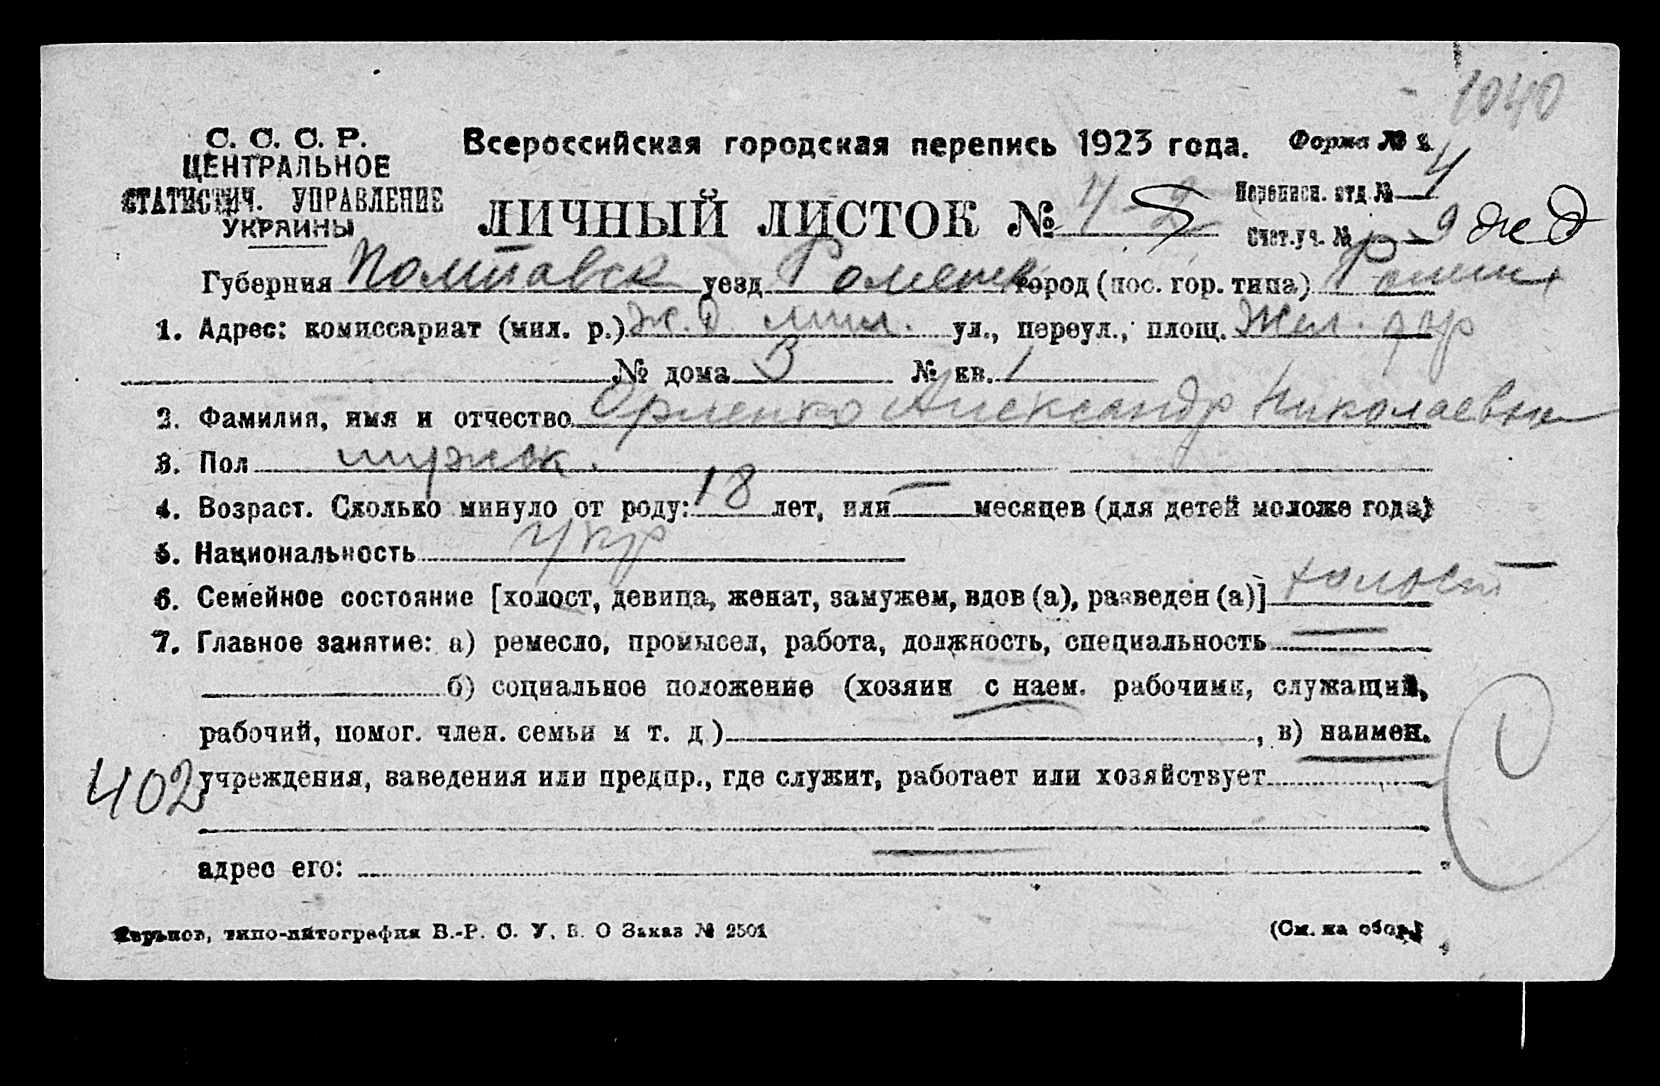 1040
С. С. С. Р.
ЦЕНТРАЛЬНОЕ
СТАТИСТИЧ. УПРАВЛЕНИЕ
УКРАИНЫ
Всероссийская городская перепись 1923 года. Форма № 2.
ЛИЧНЫЙ ЛИСТОК №
Переписн. отд. № 4
Счет. уч. № 9 жд
Губерния Полтавск уезд Роменск город (пос. гор. типа) Ромны
1. Адрес: комиссариат (мил. р.) Ж.д. мил. ул., переул., площ. Жел. дор
№ дома 3 № кв. 1
2. Фамилия, имя и отчество Орленко Александр Николаевич
3. Пол мужск.
4. Возраст. Сколько минуло от роду: 18 лет, или — месяцев (для детей моложе года)
5. Национальность укр
6. Семейное состояние [холост, девица, женат, замужем, вдов (а), разведен (а)] холост
7. Главное занятие: а) ремесло, промысел, работа, должность, специальность —
б) социальное положение (хозяин с наем. рабочими, служащий,
рабочий, помог. член. семьи и т. д.) — , в) наимен.
402 учреждения, заведения или предпр., где служит, работает или хозяйствует —
адрес его: —
Харьков, типо-литография В.-Р. С. У. В. О Заказ № 2501 (См. на обор.)